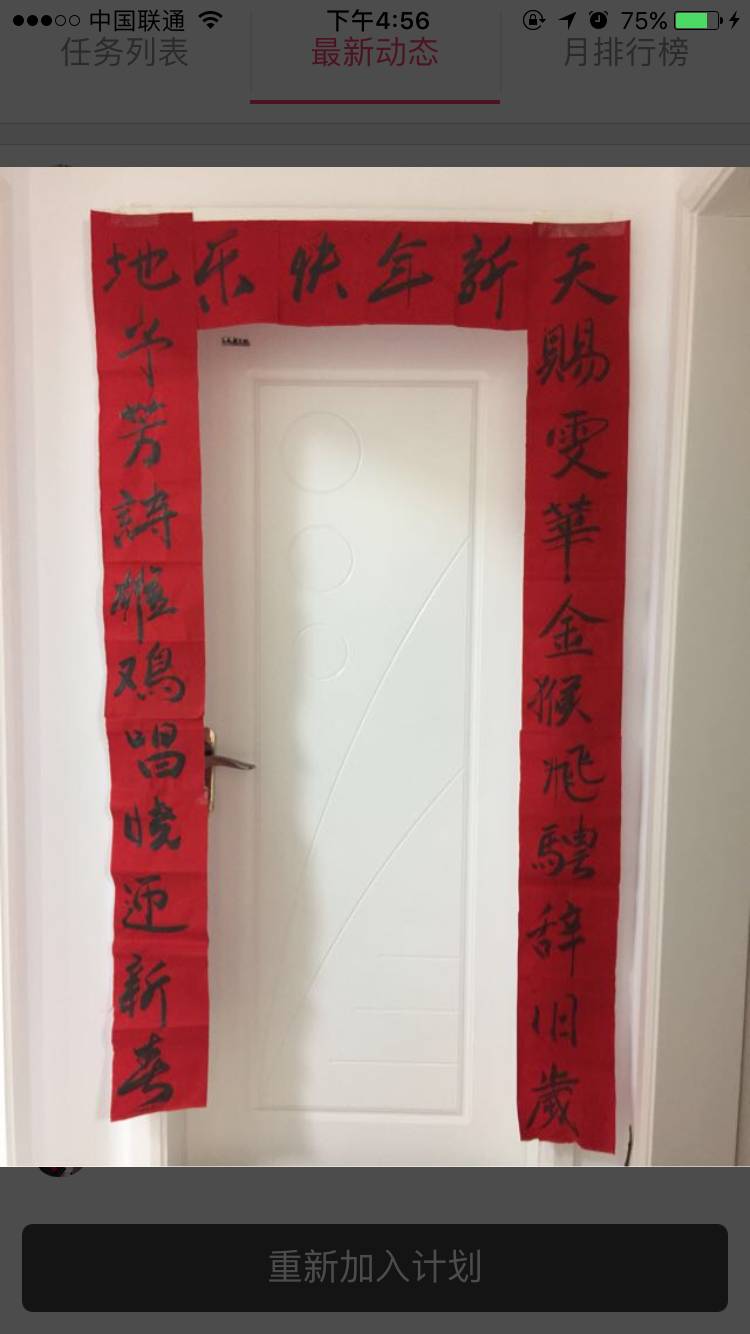 中国联通 下午4:56 75%
任务列表 最新动态 月排行榜
新年快乐
天賜雯華金猴飛騁辞旧歲
地予芳詩雄鸡唱晓迎新春
重新加入计划